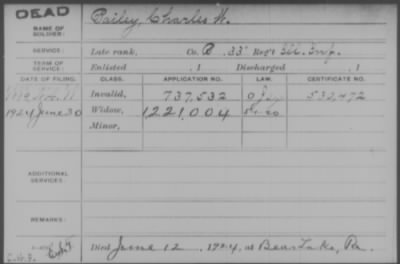 DEAD
NAME OF SOLDIER: Bailey, Charles W.
SERVICE: Late rank, Co. B 33" Reg't Ill. Inf.
TERM OF SERVICE: Enlisted , 1 Discharged , 1
DATE OF FILING. CLASS. APPLICATION NO. LAW. CERTIFICATE NO.
Invalid, 737,532 532,472
1924 June 30 Widow, 1,221,004
Minor,
ADDITIONAL SERVICES:
REMARKS:
Died June 12, 1924, at Bear Lake, Pa.